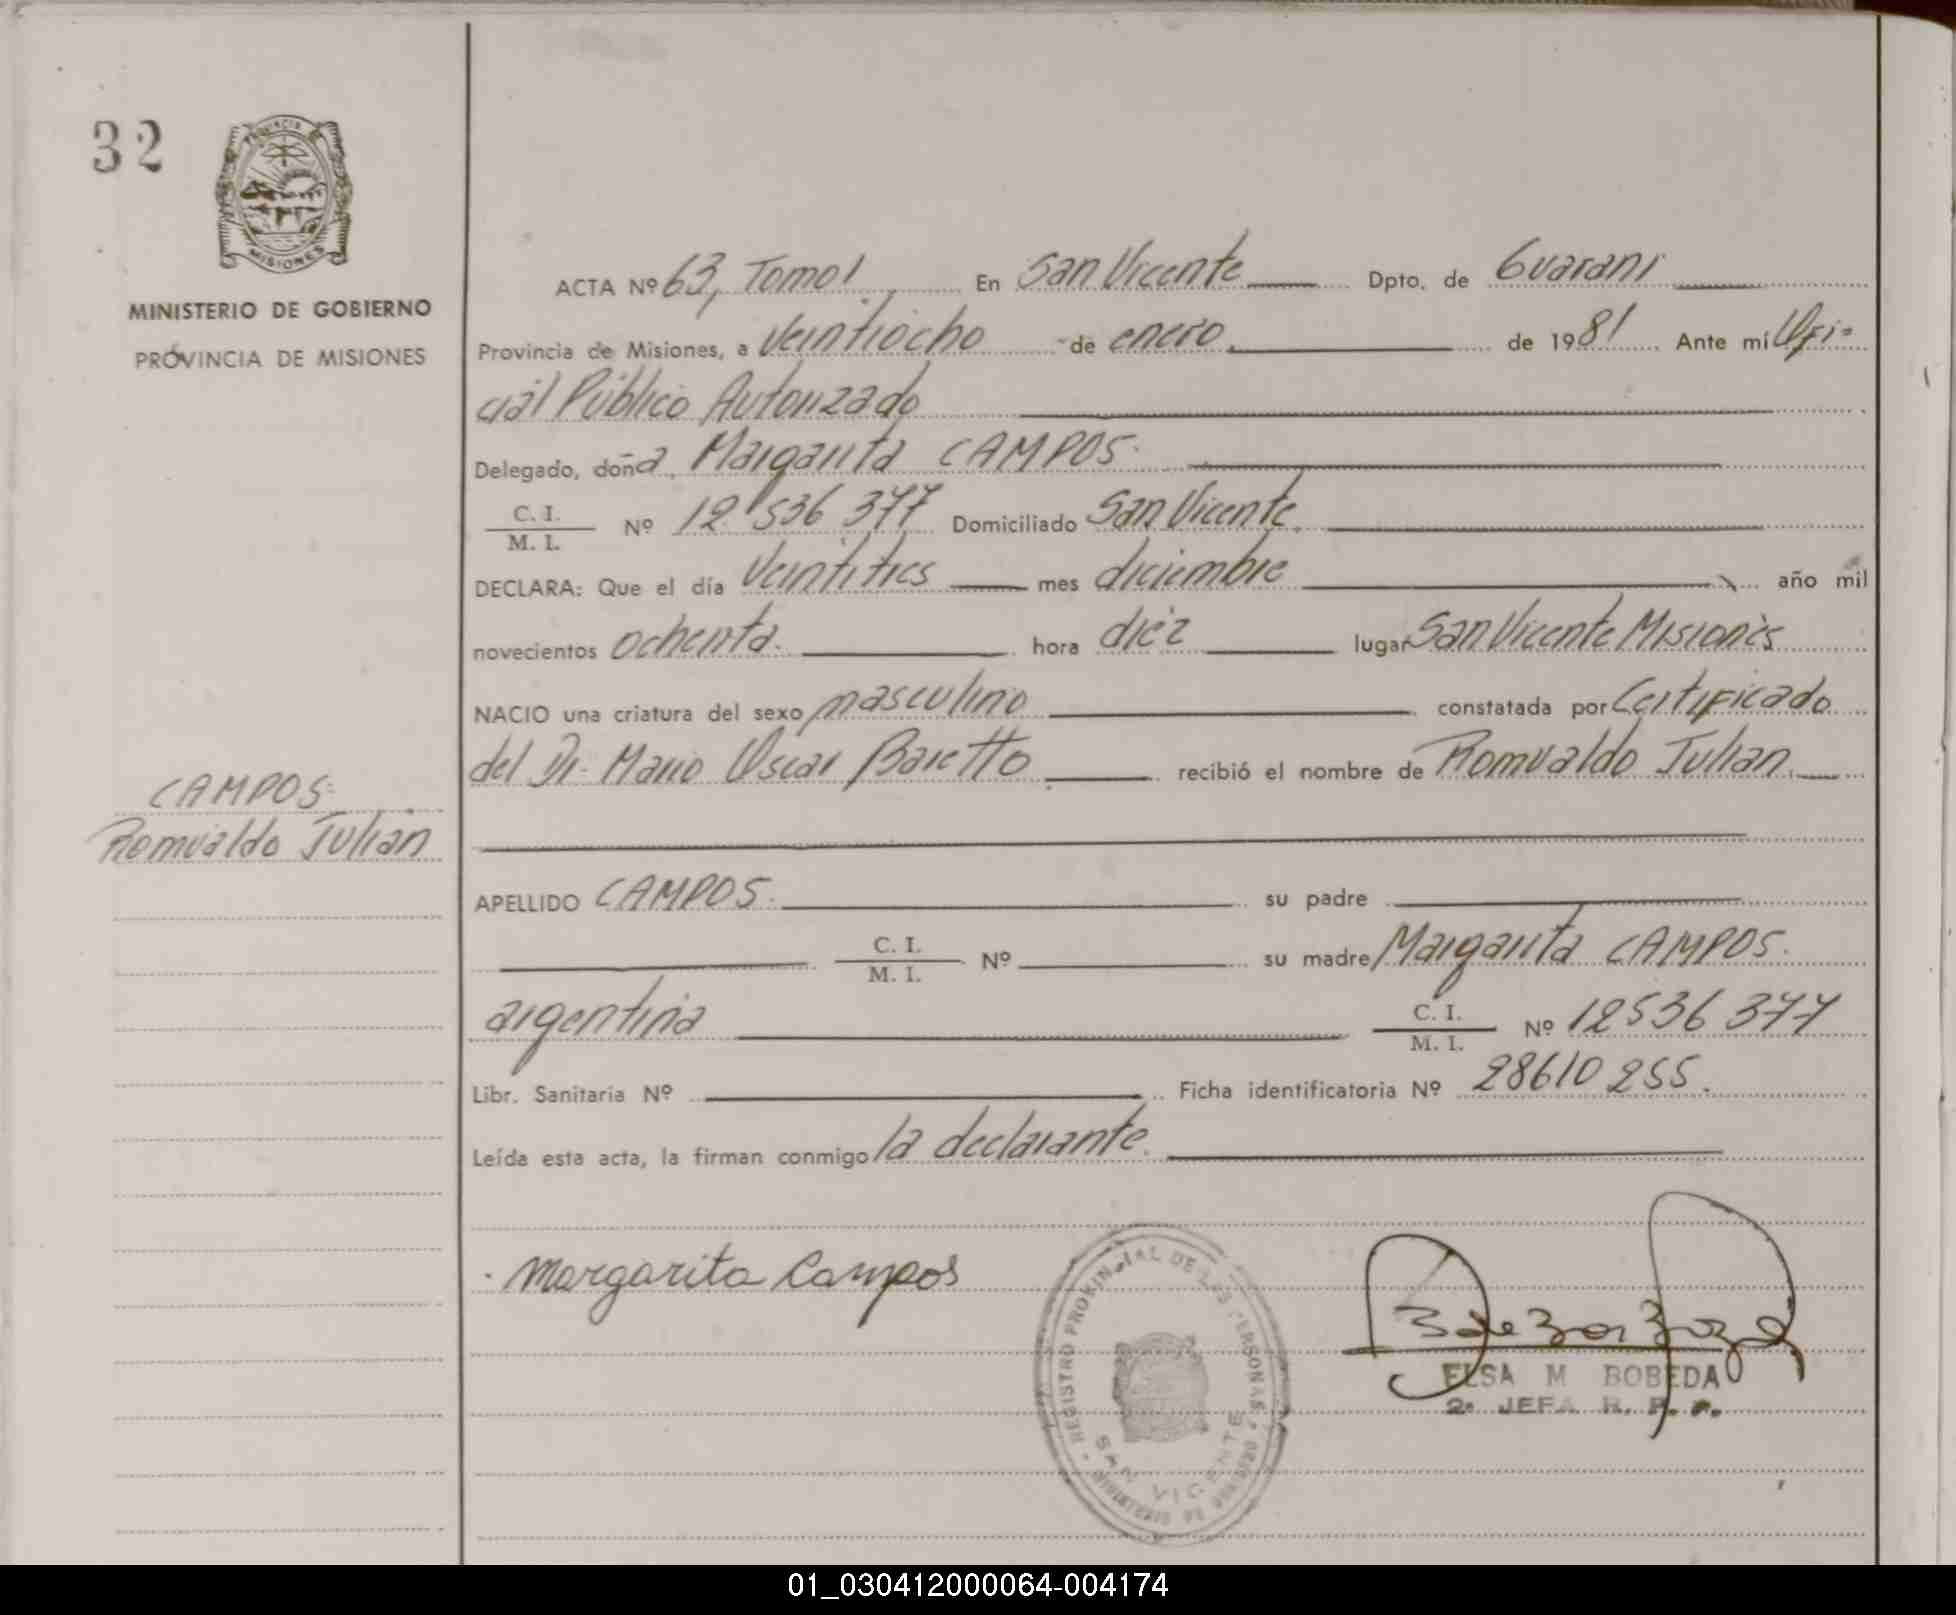 32
PROVINCIA DE
MISIONES
MINISTERIO DE GOBIERNO
PROVINCIA DE MISIONES
ACTA Nº 63, Tomo I. En San Vicente Dpto. de Guaraní
Provincia de Misiones, a Veintiocho de enero. de 1981 Ante mí Ofi-
cial Público Autorizado
Delegado, doña Margarita CAMPOS.
C. I.
M. I. Nº 12 536 377 Domiciliado San Vicente.
DECLARA: Que el día Veintitres mes diciembre año mil
novecientos ochenta. hora diéz lugar San Vicente Misiones
NACIO una criatura del sexo masculino constatada por Certificado
del Dr. Mario Oscar Baretto recibió el nombre de Romualdo Julian.
CAMPOS.
Romualdo Julian
APELLIDO CAMPOS. su padre
C. I.
M. I. Nº su madre Margarita CAMPOS.
argentina C. I.
M. I. Nº 12536 377
Libr. Sanitaria Nº Ficha identificatoria Nº 28610 255.
Leída esta acta, la firman conmigo la declarante.
Margarita Campos
REGISTRO PROVINCIAL DE LAS PERSONAS
SAN VICENTE
MINISTERIO DE GOBIERNO
ELSA M BOBEDA
2ª JEFA R. P. P.
01_030412000064-004174